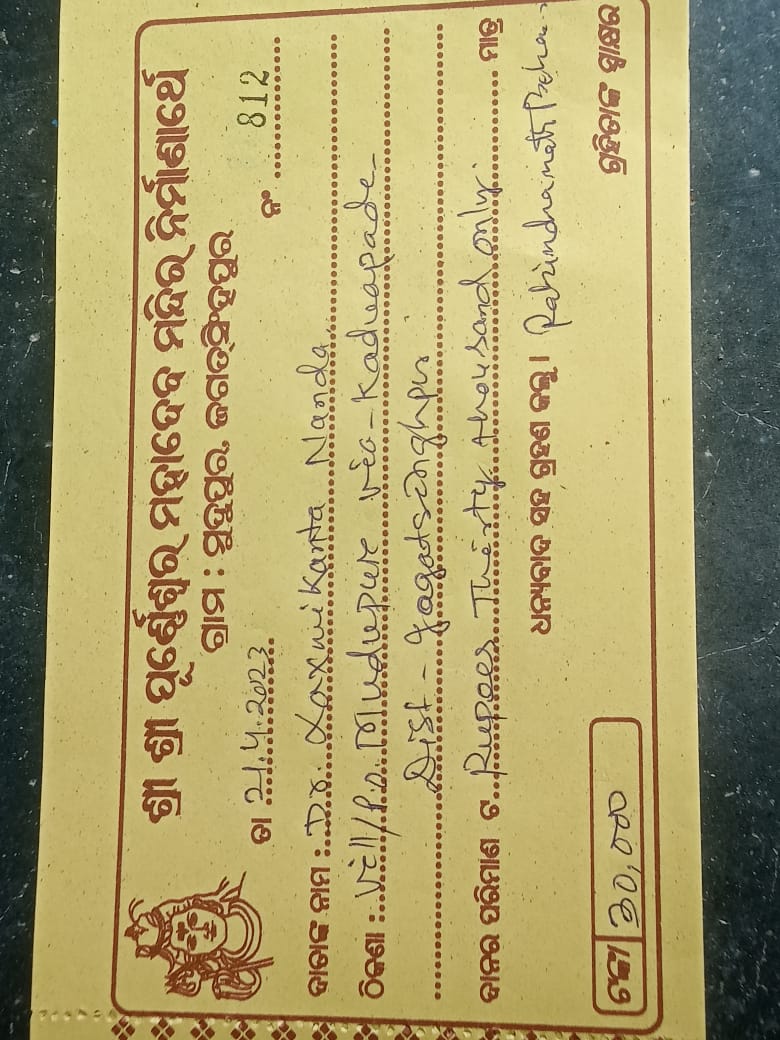 ଶ୍ରୀ ଶ୍ରୀ ପୂର୍ଣ୍ଣେଶ୍ୱର ମହାଦେବ ମନ୍ଦିର ନିର୍ମାଣାର୍ଥେ
ଗ୍ରାମ : ମୁଦୁପୁର, ଜଗତସିଂହପୁର
ତା 21.4.2023 ନଂ 812
ଦାତାଙ୍କ ନାମ : Dr. Laxmikanta Nanda
ଠିକଣା : Vill/P.O. Mudupur via - Kaduapada
Dist - Jagatsinghpur
ଦାନର ପରିମାଣ ଟ. Rupees Thirty thousand only. ମାତ୍ର
ଧନ୍ୟବାଦ ସହ ଗ୍ରହଣ କଲୁ ।
ଟଙ୍କା 30,000 ଗ୍ରହିତାଙ୍କ ସ୍ୱାକ୍ଷର